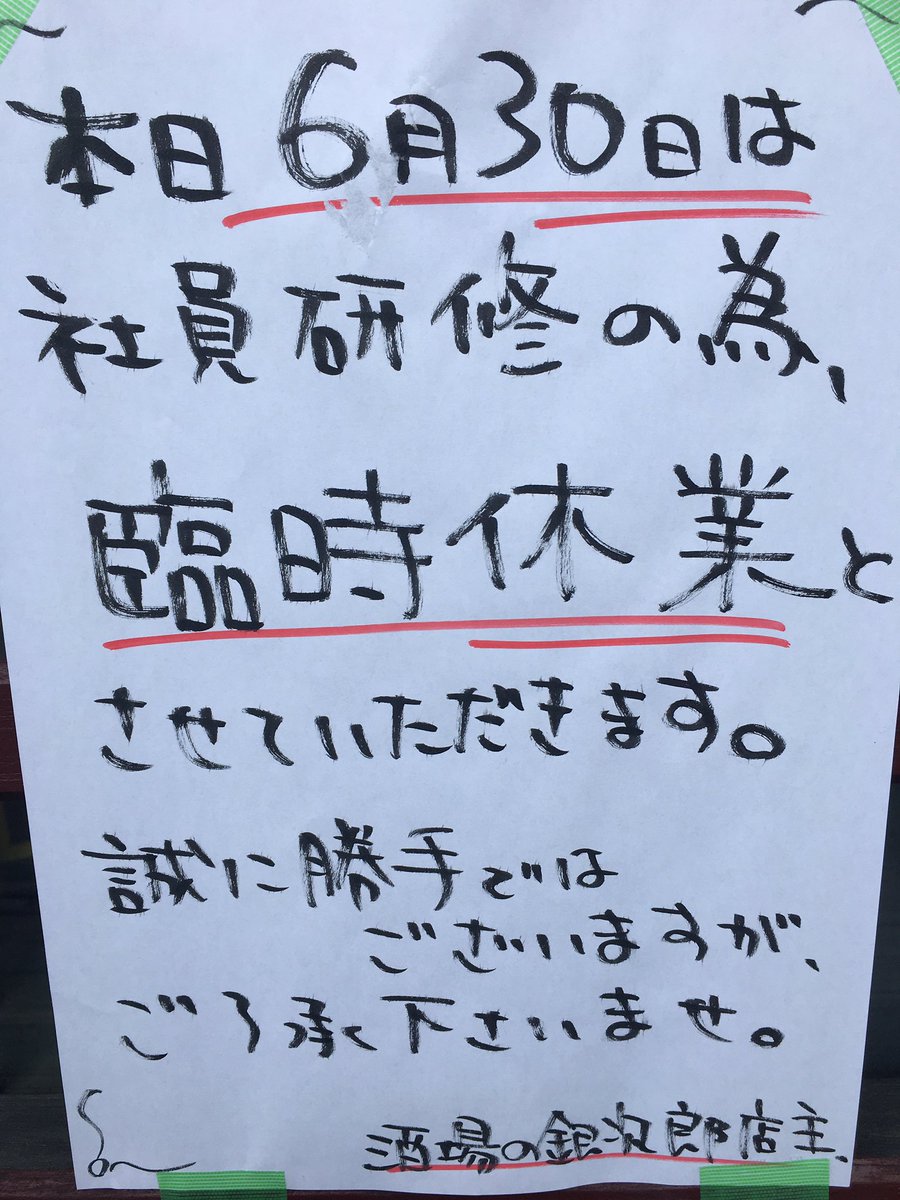 本日6月30日は
社員研修の為、
臨時休業と
させていただきます。
誠に勝手では
ございますが、
ご了承下さいませ。
酒場の銀次郎店主、